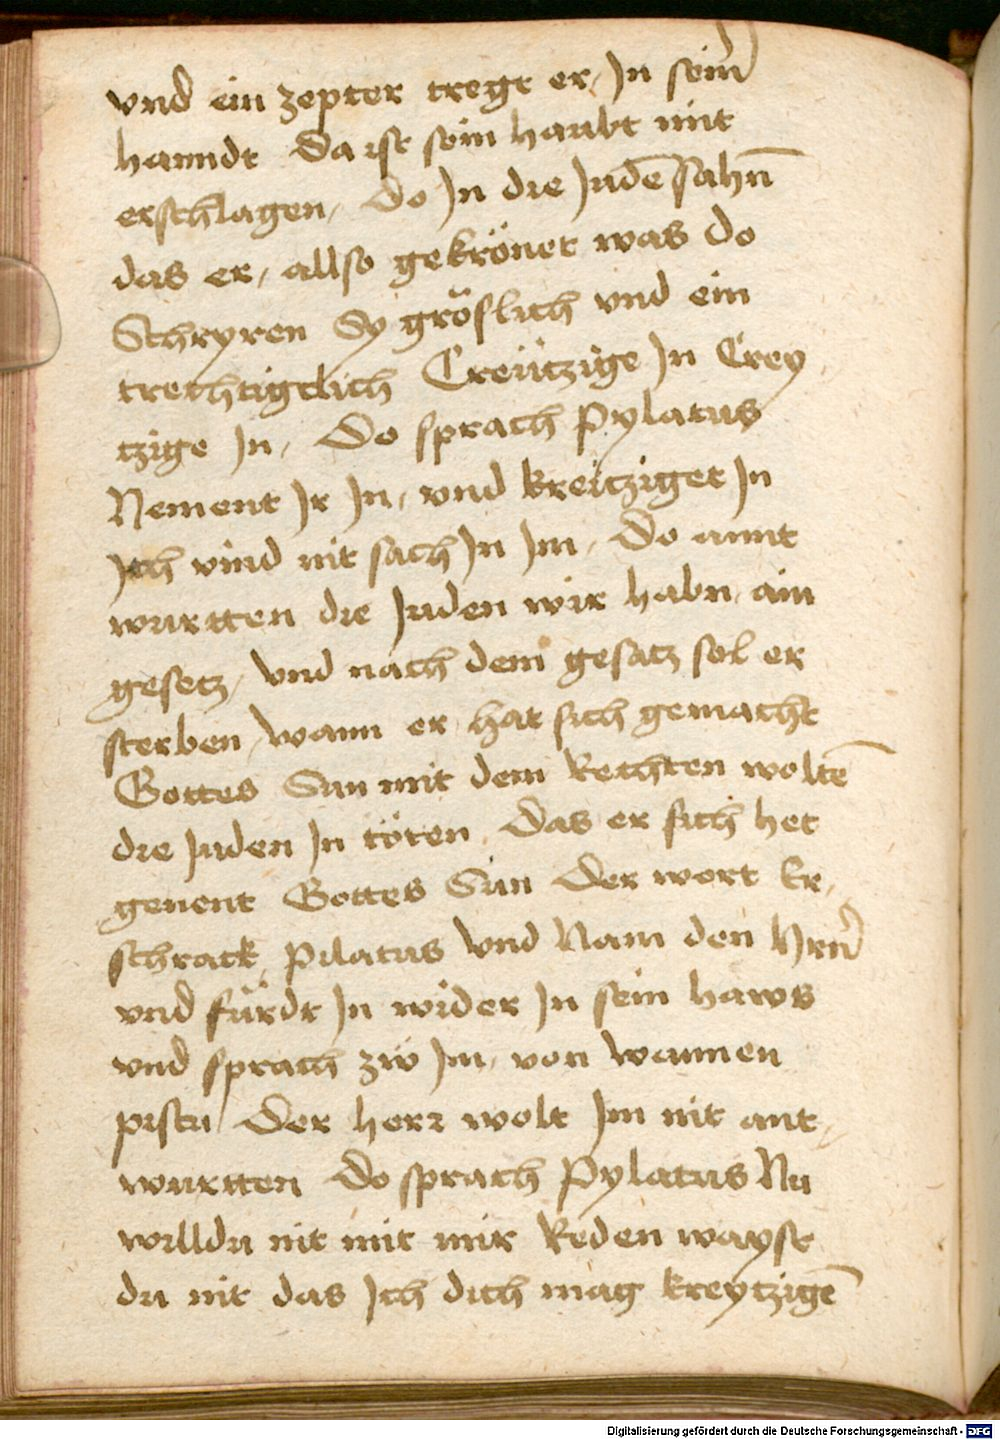 vnd ein zepter tregt er, Jn seinr̄
hanndt Da ist sein haubt mit
erschlagen, Do Jn die Judē sahn̄
das er, allso gekrönet was do
Schryren Sy gröslich vnd ein
trechtigclich Creützige Jn Crey
tzige Jn, Do sprach Pylatus
Nement Jr Jn, vnd kreitziget Jn
Jch vind nit sach Jn Jm, Do annt
wurtten die Juden wir habn ain
gesetz, Vnd nach dem gesatz sol er
sterben, Wann er hat sich gemacht
Gottes Sun mit dem Rechten woltē
die Juden Jn töten, Das er sich het
genent Gottes Sun Der wort Er,
schrack, Pilatus Vnd Nam den Hrn̄
vnd fürdt Jn wider Jn sein haws
vnd sprach zw Jm, von Wannen
pistu, Der herr wolt Jm nit ant,
wurtten Do sprach Pylatus Nu
willdu nit mit mir Reden wayst
du nit das Jch dich mag kreytzigē
Digitalisierung gefördert durch die Deutsche Forschungsgemeinschaft - DFG